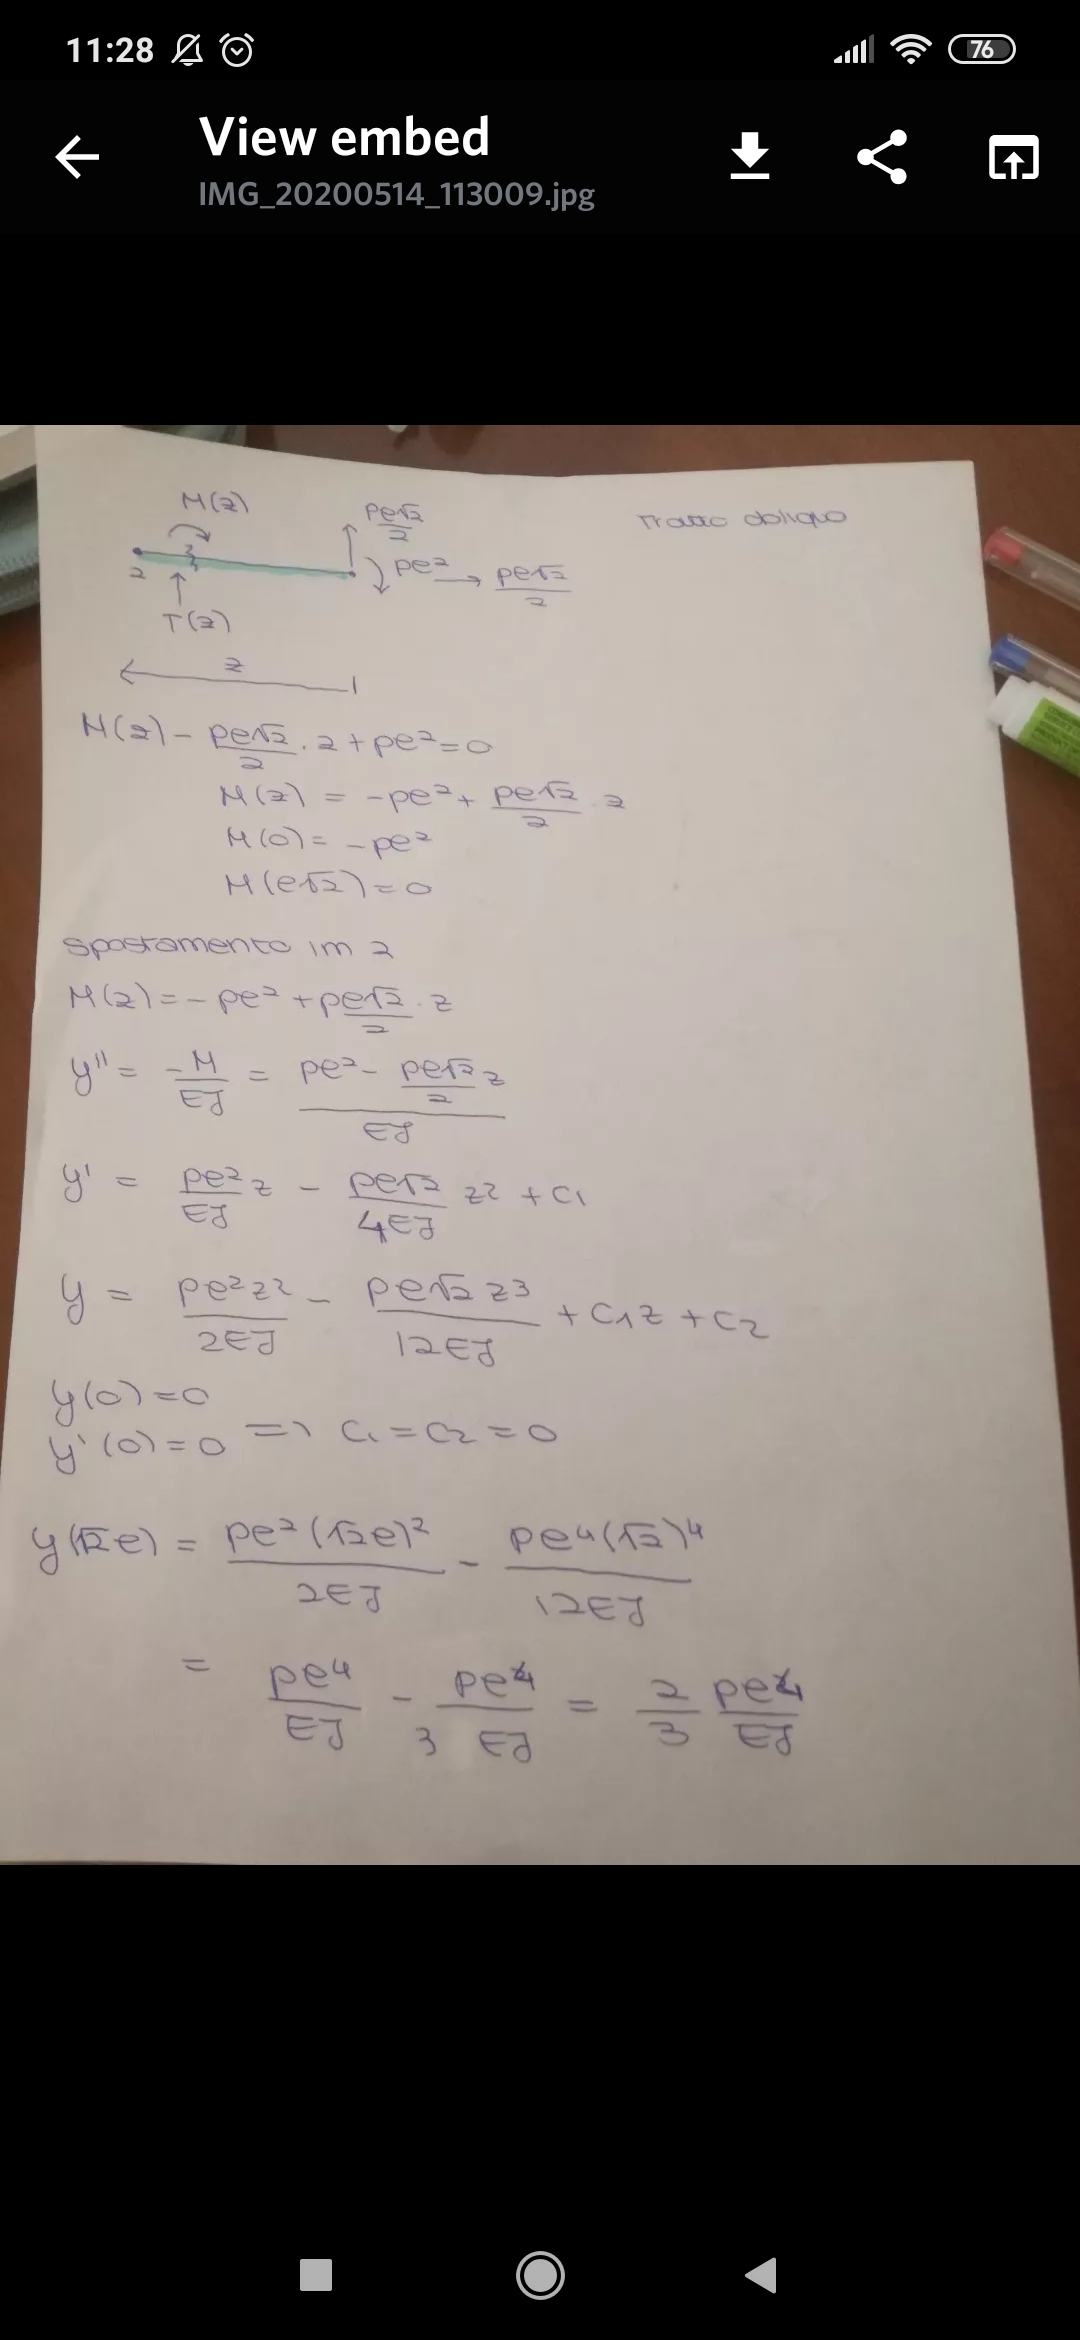 11:28 76
View embed
IMG_20200514_113009.jpg
Tratto obliquo
M(z)
pe√2/2
2
pe² → pe√2/2
T(z)
z
M(z) - pe√2/2 · z + pe² = 0
M(z) = -pe² + pe√2/2 · z
M(0) = -pe²
M(e√2) = 0
Spostamento im 2
M(z) = -pe² + pe√2/2 · z
y'' = -M/EJ = (pe² - pe√2/2 z)/EJ
y' = pe²/EJ z - pe√2/4EJ z² + C1
y = pe²z²/2EJ - pe√2 z³/12EJ + C1z + C2
y(0) = 0
y'(0) = 0 => C1 = C2 = 0
y(√2e) = pe²(√2e)²/2EJ - pe⁴(√2)⁴/12EJ
= pe⁴/EJ - pe⁴/3 EJ = 2/3 pe⁴/EJ